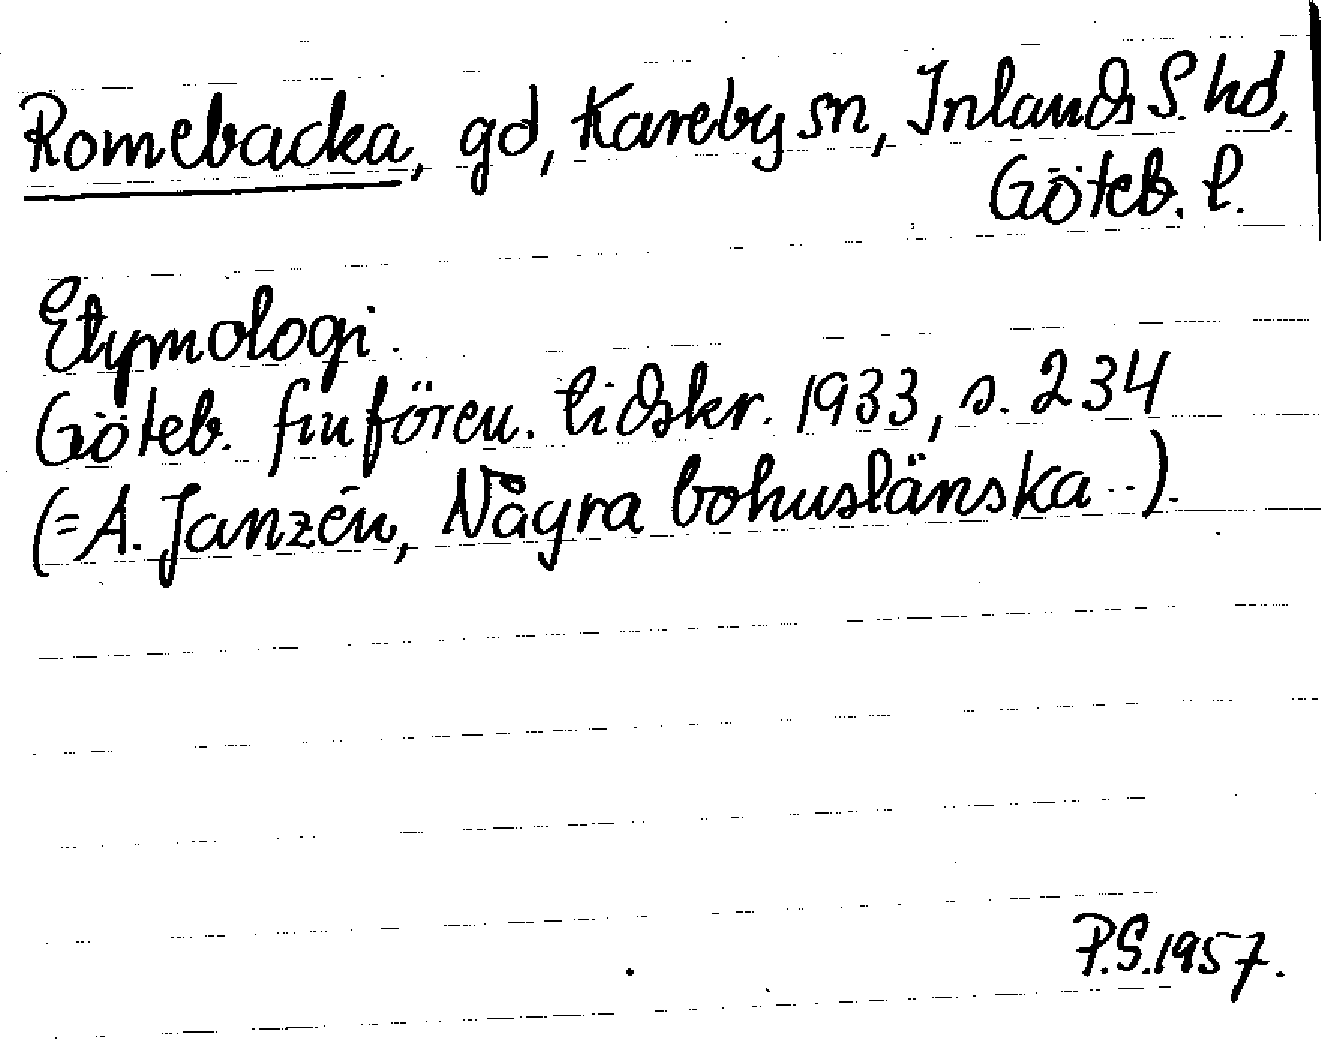 Romebacka, gd, Kareby sn, Inlands S. hd,
Göteb. l.
Etymologi.
Göteb. fmfören. tidskr. 1933, s. 234
(= A. Janzén, Några bohuslänska --).
P.S. 1957.